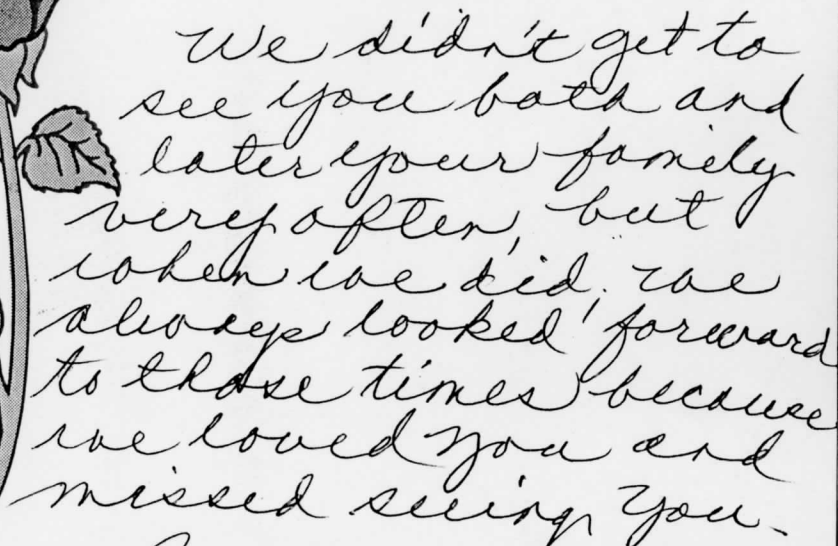 We didn't get to
see you both and
later your family
very often, but
when we did, we
always looked forward
to those times because
we loved you and
missed seeing you.